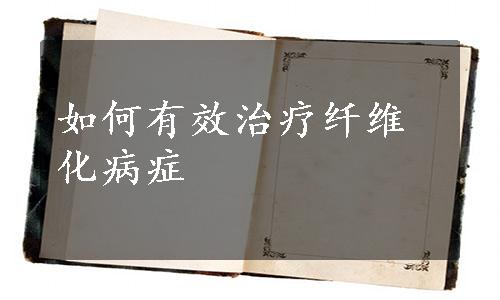 如何有效治疗纤维
化病症